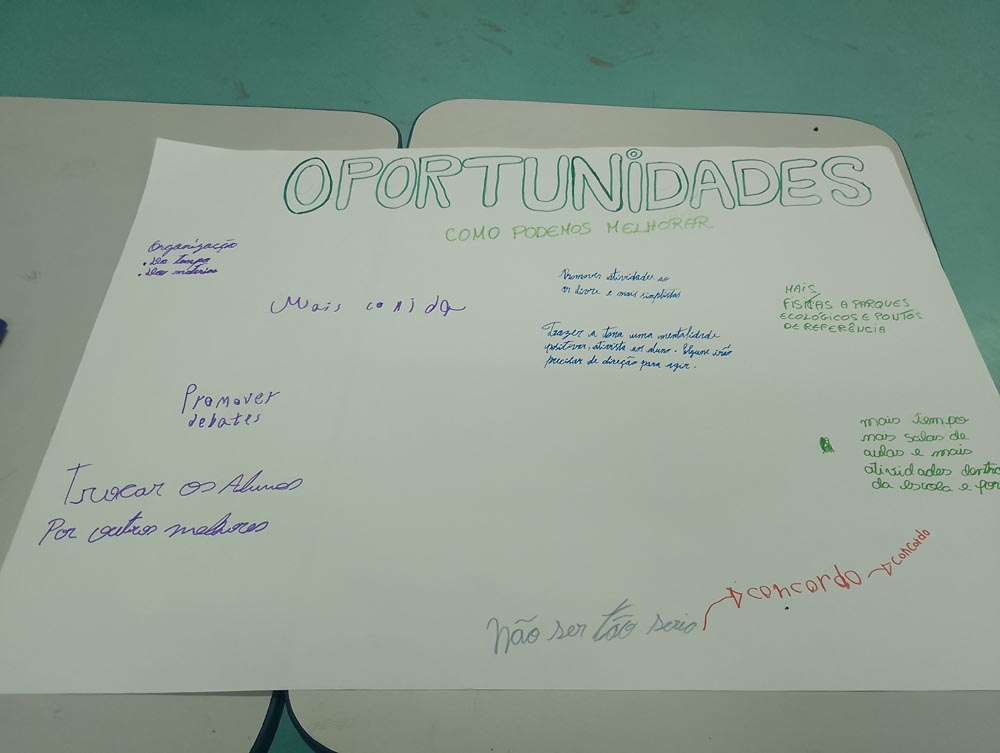 OPORTUNIDADES
COMO PODEMOS MELHORAR
Organização
• Do tempo
• Dos matérias
Mais comida
Promover
debates
Trocar os Alunos
Por outros melhores
Promover atividades ao
ar livre e mais simplistas
Trazer a tona uma mentalidade
positiva, ao aluno. Alguns irão
precisar de direção para agir.
MAIS
A PARQUES
ECOLÓGICOS E PONTOS
DE REFERÊNCIA
mais tempo
nas salas de
aulas e mais
atividades dentro
da escola e for
Não ser tão serio
concordo
concordo